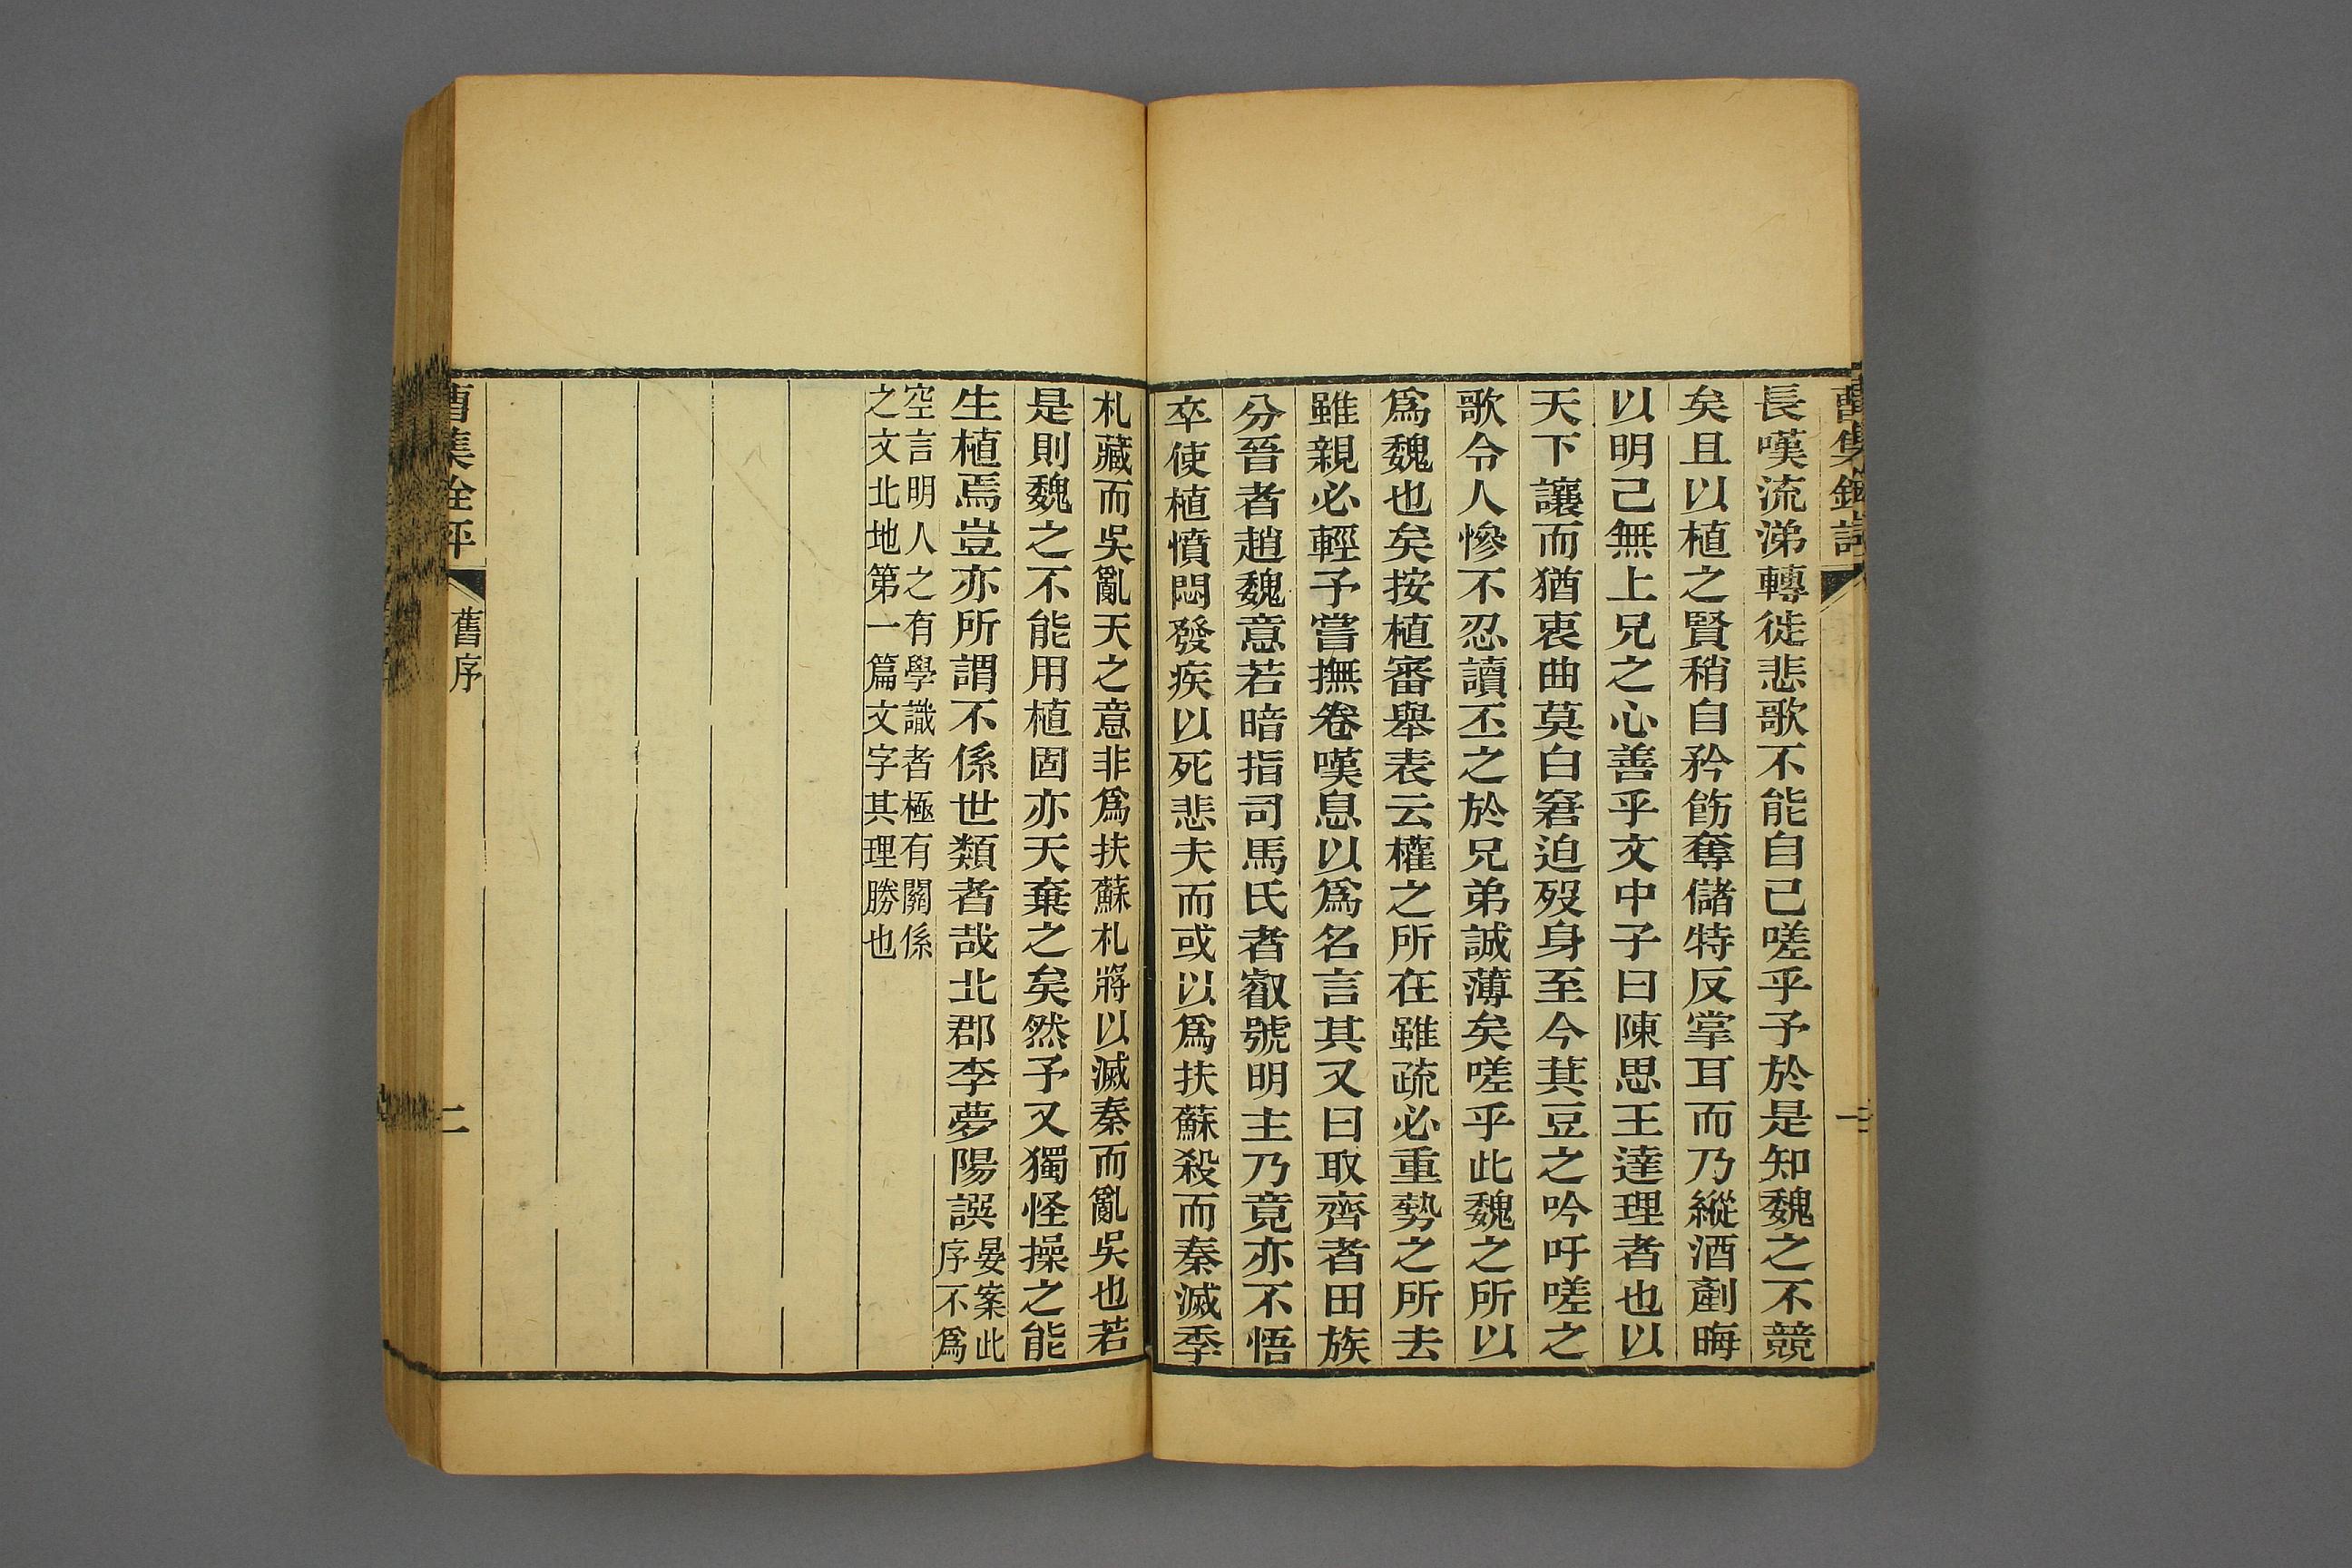 曹集銓評
二
長嘆流涕轉徙悲歌不能自己嗟乎予於是知魏之不競
矣且以植之賢稍自矜飭奪儲特反掌耳而乃縱酒剷晦
以明己無上兄之心善乎文中子曰陳思王達理者也以
天下讓而猶衷曲莫白窘迫歿身至今萁豆之吟吁嗟之
歌令人慘不忍讀丕之於兄弟誠薄矣嗟乎此魏之所以
爲魏也矣按植審舉表云權之所在雖疏必重勢之所去
雖親必輕予嘗撫卷嘆息以爲名言其又曰取齊者田族
分晉者趙魏意若暗指司馬氏者叡號明主乃竟亦不悟
卒使植憤悶發疾以死悲夫而或以爲扶蘇殺而秦滅季
札藏而吳亂天之意非爲扶蘇札將以滅秦而亂吳也若
是則魏之不能用植固亦天棄之矣然予又獨怪操之能
生植焉豈亦所謂不係世類者哉北郡李夢陽譔晏案此
序不爲
空言明人之有學識者極有關係
之文北地第一篇文字其理勝也
曹集銓評
舊序
二